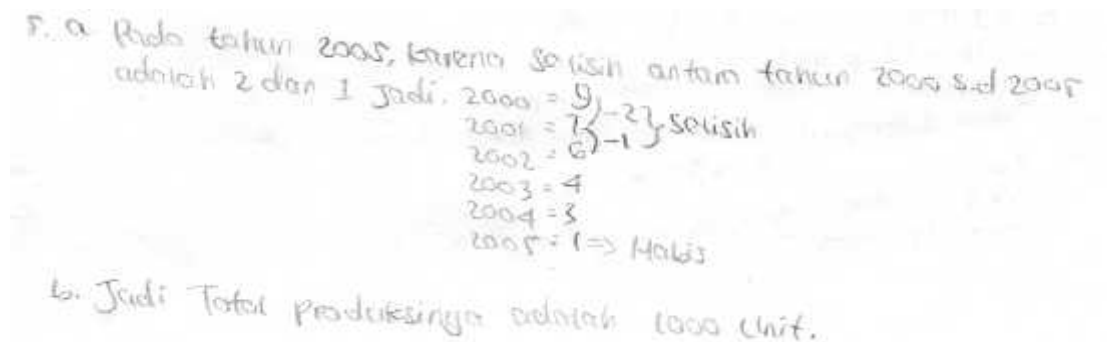 5. a Pada tahun 2005, karena selisih antara tahun 2000 s.d 2005
adalah 2 dan 1 Jadi. 2000 = 9
2001 = 7 } -2 } selisih
2002 = 6 } -1
2003 = 4
2004 = 3
2005 = 1 => Habis
b. Jadi Total produksinya adalah 1000 Unit.